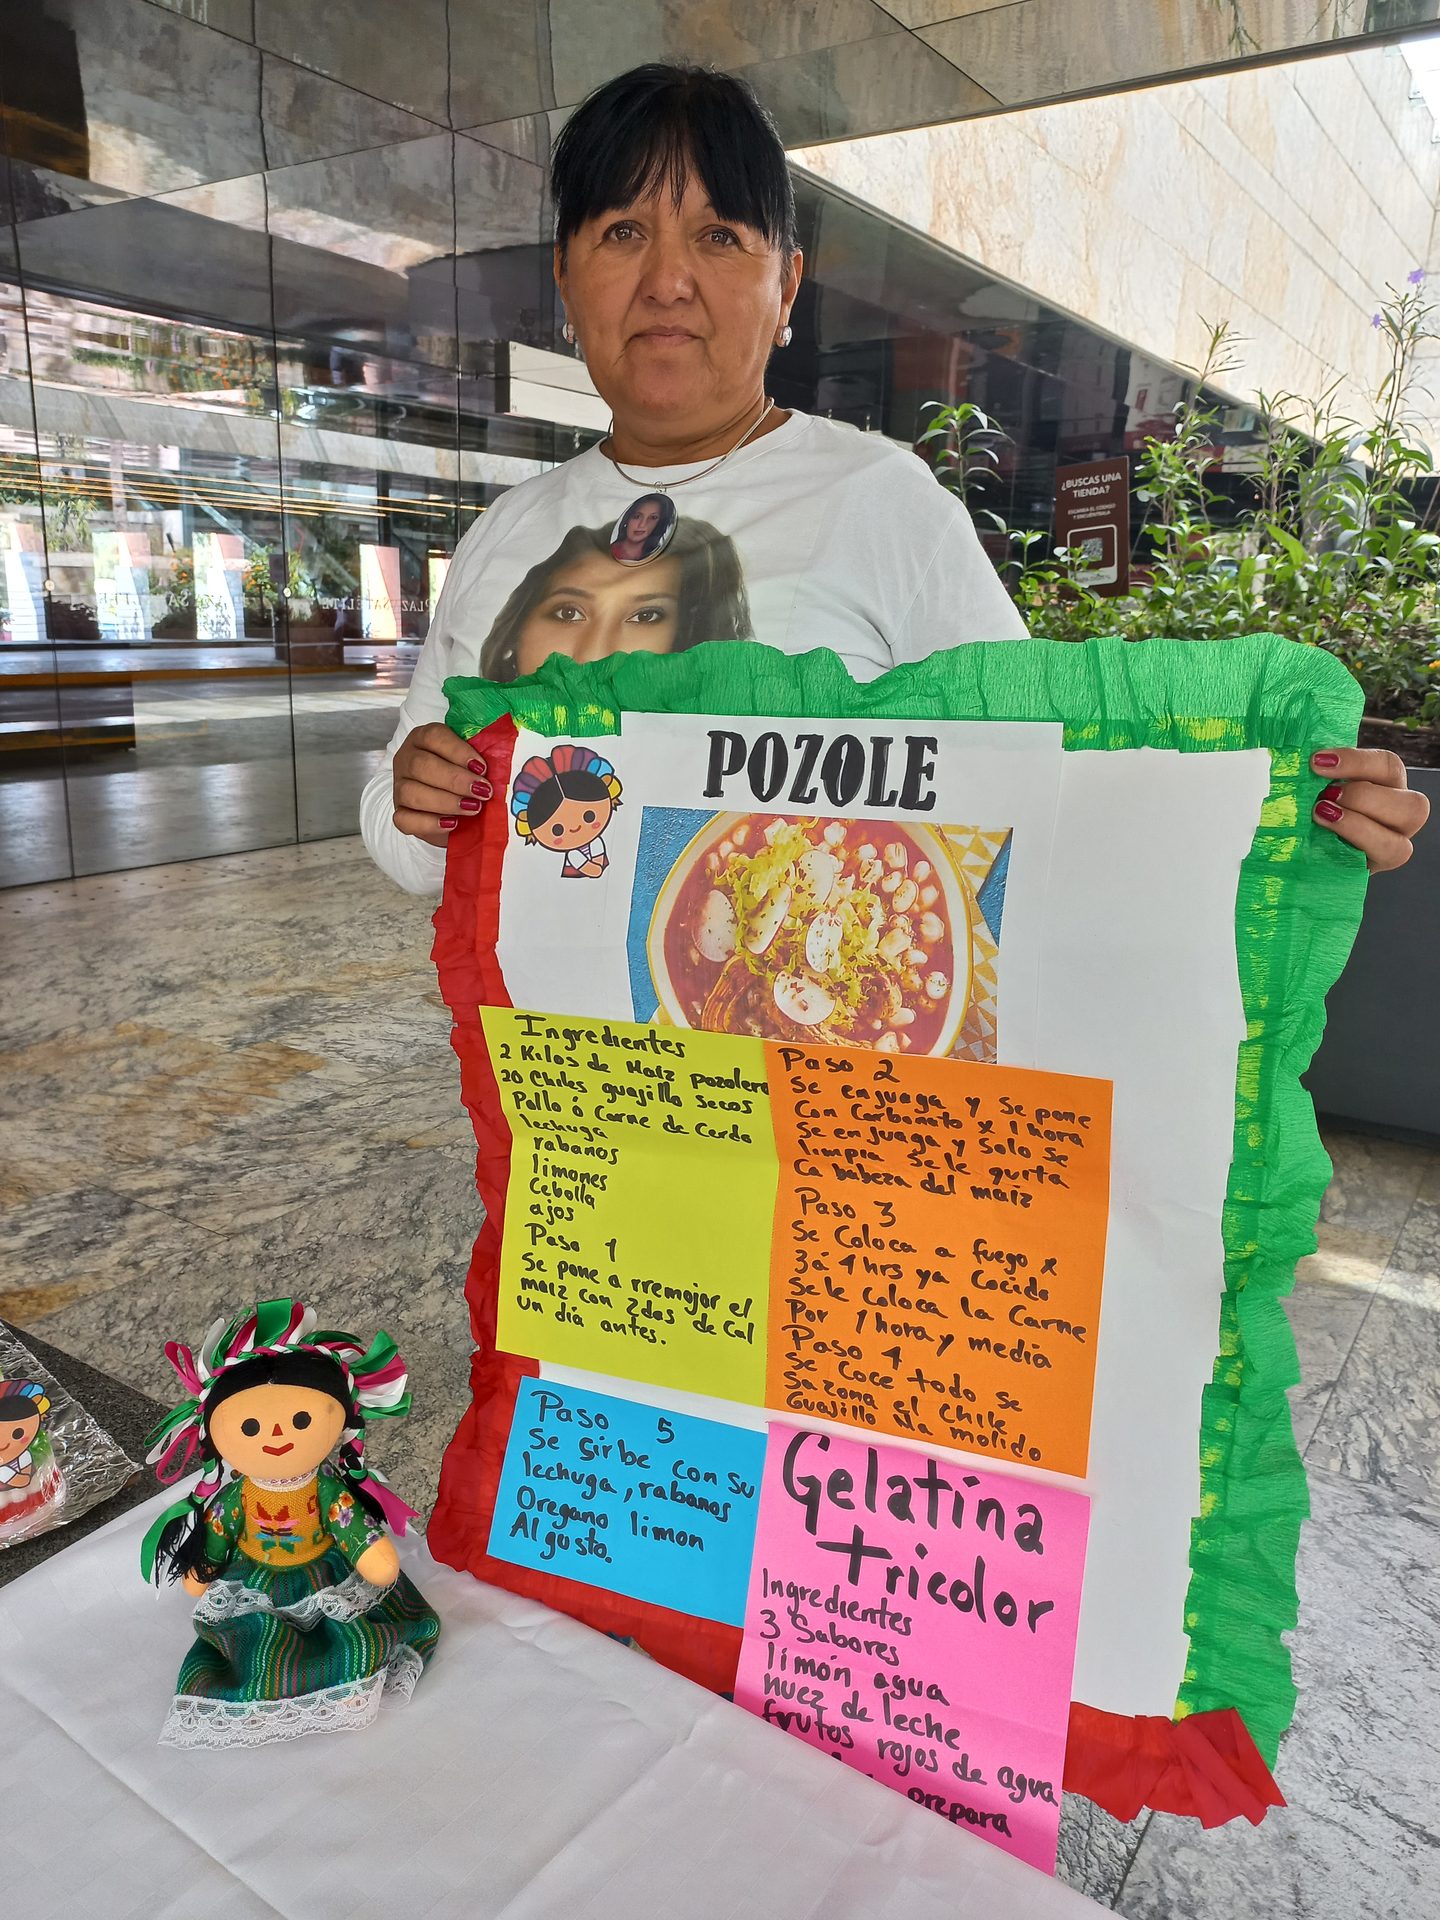 ¿BUSCAS UNA
TIENDA?
ESCANEA EL CÓDIGO
Y ENCUÉNTRALA
PLAZA SATÉLITE
POZOLE
Ingredientes
2 Kilos de Maiz pozolero
20 Chiles guajillo Secos
Pollo ó Carne de Cerdo
lechuga
rabanos
limones
Cebolla
ajos
Paso 1
Se pone a rremojar el
maiz con 2das de Cal
un dia antes.
Paso 2
Se enjuaga y Se pone
Con Carbonato x 1 hora
Se enjuaga y Solo se
limpia Se le quita
Ca babeza del maiz
Paso 3
Se Coloca a fuego x
3 á 4 hrs ya Cocido
Se le Coloca la Carne
Por 1 hora y media
Paso 4
Se Coce todo se
Sazona el Chile
Guajillo Ya molido
Paso 5
Se Sirbe con su
lechuga, rabanos
Oregano limon
Al gusto.
Gelatina
tricolor
Ingredientes
3 Sabores
limón agua
nuez de leche
frutos rojos de agua
prepara